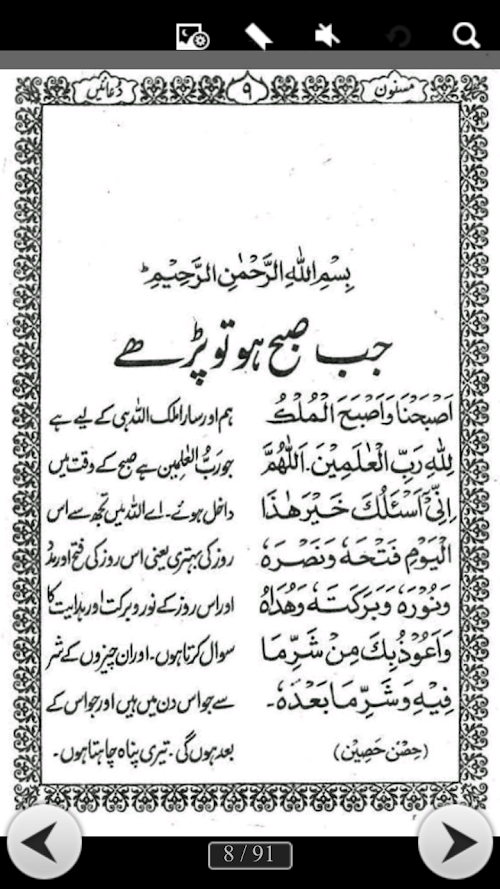 مسنون
۹
دعائیں
بِسْمِ اللهِ الرَّحْمٰنِ الرَّحِيْمِ ط
جب صبح ہو تو پڑھے
اَصْبَحْنَا وَاَصْبَحَ الْمُلْكُ
لِلّٰهِ رَبِّ الْعٰلَمِيْنَ. اَللّٰهُمَّ
اِنِّيْٓ اَسْئَلُكَ خَيْرَ هٰذَا
الْيَوْمِ فَتْحَهٗ وَنَصْرَهٗ
وَنُوْرَهٗ وَبَرَكَتَهٗ وَهُدَاهُ
وَاَعُوْذُ بِكَ مِنْ شَرِّ مَا
فِيْهِ وَشَرِّ مَا بَعْدَهٗ۔
(حِصْن حَصِيْن)
ہم اور سارا ملک اللہ ہی کے لیے ہے
جو رَبُّ العٰلمین ہے صبح کے وقت میں
داخل ہوئے۔ اے اللہ میں تجھ سے اس
روز کی بہتری یعنی اس روز کی فتح اور مدد
اور اس روز کے نور و برکت اور ہدایت کا
سوال کرتا ہوں۔ اور ان چیزوں کے شر
سے جو اس دن میں ہیں اور جو اس کے
بعد ہوں گی۔ تیری پناہ چاہتا ہوں۔
8 / 91